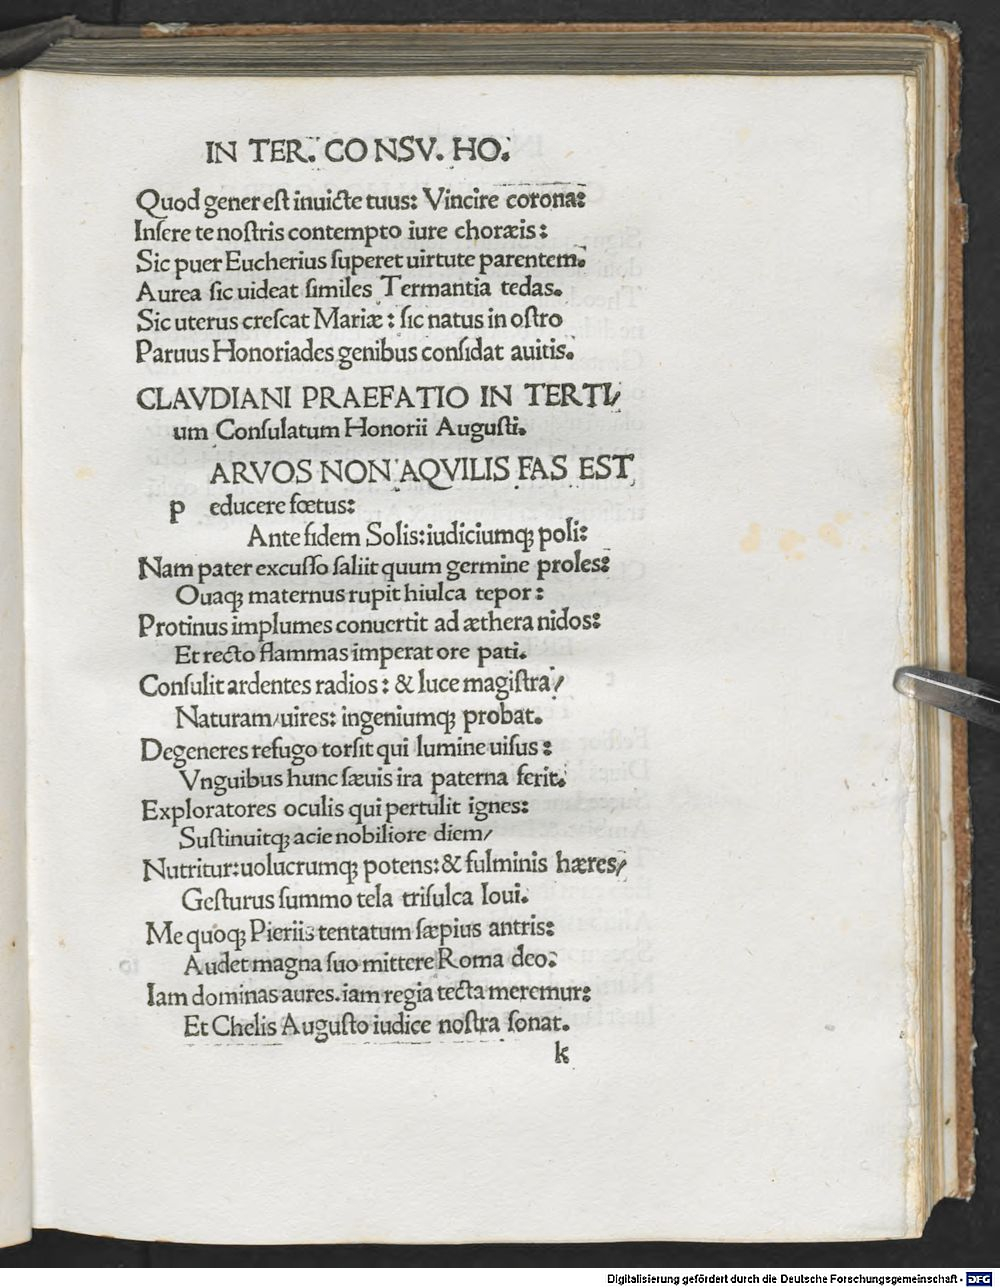 IN TER. CONSV. HO.
Quod gener est inuicte tuus: Vincire corona:
Insere te nostris contempto iure choræis:
Sic puer Eucherius superet uirtute parentem.
Aurea sic uideat similes Termantia tedas.
Sic uterus crescat Mariæ: sic natus in ostro
Paruus Honoriades genibus considat auitis.
CLAVDIANI PRAEFATIO IN TERTI/
um Consulatum Honorii Augusti.
ARVOS NON AQVILIS FAS EST
p educere fœtus:
Ante fidem Solis: iudiciumq; poli:
Nam pater excusso saliit quum germine proles:
Ouaq; maternus rupit hiulca tepor:
Protinus implumes conuertit ad æthera nidos:
Et recto flammas imperat ore pati.
Consulit ardentes radios: & luce magistra/
Naturam/uires: ingeniumq; probat.
Degeneres refugo torsit qui lumine uisus:
Vnguibus hunc sæuis ira paterna ferit.
Exploratores oculis qui pertulit ignes:
Sustinuitq; acie nobiliore diem/
Nutritur: uolucrumq; potens: & fulminis hæres/
Gesturus summo tela trisulca Ioui.
Me quoq; Pieriis tentatum sæpius antris:
Audet magna suo mittere Roma deo:
Iam dominas aures. iam regia tecta meremur:
Et Chelis Augusto iudice nostra sonat.
k
Digitalisierung gefördert durch die Deutsche Forschungsgemeinschaft - DFG